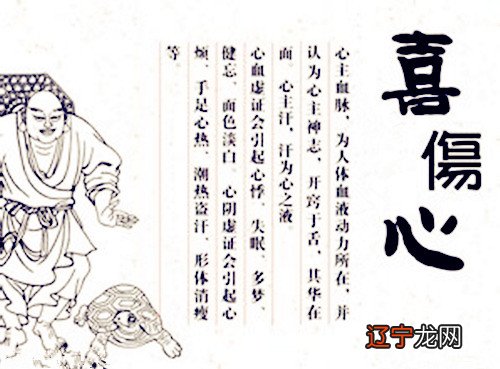 喜傷心
心主血脉，为人体血液动力所在，并
认为心主神志，开窍于舌，其华在
面　心主汗，汗为心之液。
心血虚证会引起心悸、失眠、多梦、
健忘、面色淡白。心阴虚证会引起心
烦、手足心热、潮热盗汗、形体消瘦
等
辽宁龙网